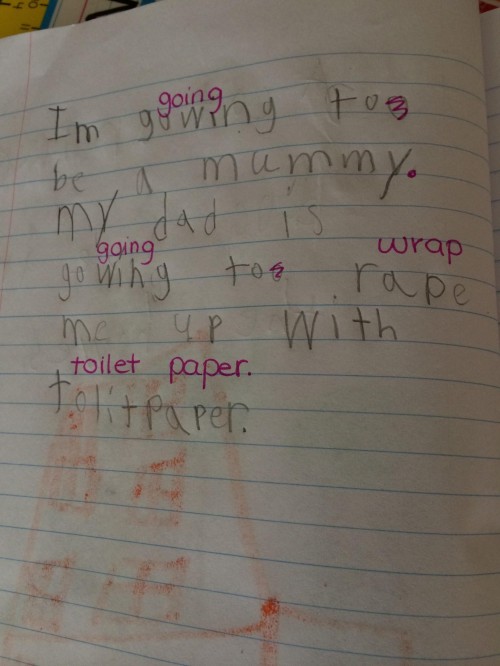 going
Im gowing to
be a mummy.
my dad is
going wrap
gowing to rape
me up With
toilet paper.
tolitpaper.